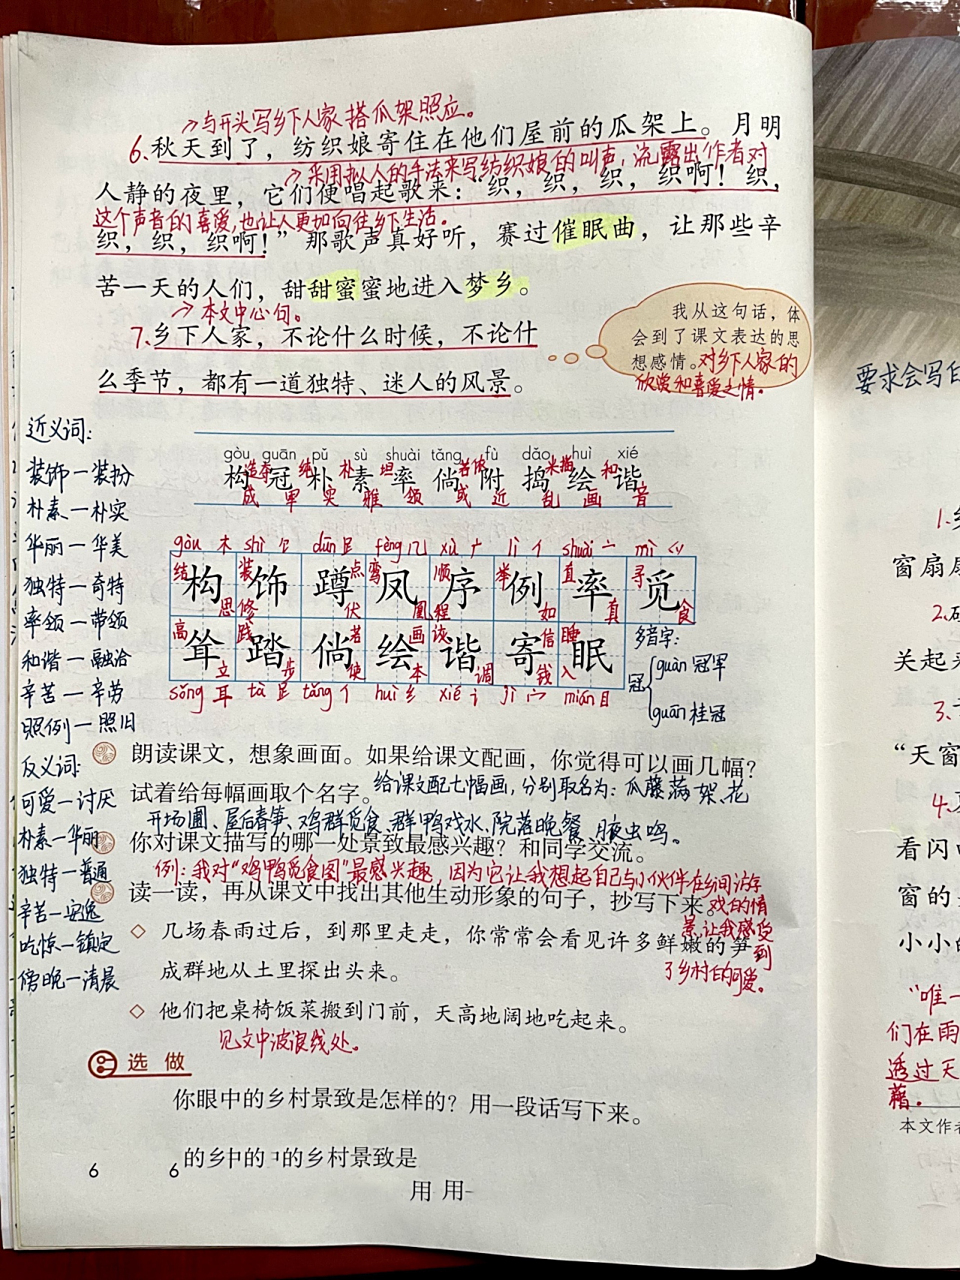 →与开头写乡下人家搭瓜架照应。
6.秋天到了，纺织娘寄住在他们屋前的瓜架上。月明
→采用拟人的手法来写纺织娘的叫声，流露出作者对
人静的夜里，它们便唱起歌来：“织，织，织，织啊！织，
这个声音的喜爱，也让人更加向往乡下生活。
织，织，织啊！”那歌声真好听，赛过催眠曲，让那些辛
苦一天的人们，甜甜蜜蜜地进入梦乡。
→本文中心句。
7.乡下人家，不论什么时候，不论什
么季节，都有一道独特、迷人的风景。
我从这句话，体
会到了课文表达的思
想感情。对乡下人家的
欣赏和喜爱之情。
近义词：
装饰—装扮
朴素—朴实
华丽—华美
独特—奇特
率领—带领
和谐—融洽
辛苦—辛劳
照例—照旧
反义词：
可爱—讨厌
朴素—华丽
独特—普通
辛苦—安逸
吃惊—镇定
傍晚—清晨
gòu guān pǔ sù shuài tǎng fù dǎo huì xié
构 冠 朴 素 率 倘 附 捣 绘 谐
成 甲 实 雅 领 或 近 乱 画 音
gòu 木 shì 饣 dūn 𧾷 fèng 几 xù 广 lì 亻 shuài 亠 mì 爫
结 装 点 鸾 顺 举 直 寻
构 饰 蹲 凤 序 例 率 觅
思 修 伏 凰 程 如 真 食
高 践 若 画 诙 信 睡
耸 踏 倘 绘 谐 寄 眠
立 步 使 本 调 钱 入
sǒng 耳 tà 𧾷 tǎng 亻 huì 纟 xié 讠 jì 宀 mián 目
多音字：
冠 guàn 冠军
guān 桂冠
朗读课文，想象画面。如果给课文配画，你觉得可以画几幅？
试着给每幅画取个名字。给课文配七幅画，分别取名为：瓜藤满架、花
开场圃、屋后春笋、鸡群觅食、群鸭戏水、院落晚餐、夜虫鸣。
你对课文描写的哪一处景致最感兴趣？和同学交流。
例：我对“鸡鸭觅食图”最感兴趣，因为它让我想起自己与小伙伴在乡间游
读一读，再从课文中找出其他生动形象的句子，抄写下来。戏的情
景，让我感受到
了乡村的可爱。
◇ 几场春雨过后，到那里走走，你常常会看见许多鲜嫩的笋，
成群地从土里探出头来。
◇ 他们把桌椅饭菜搬到门前，天高地阔地吃起来。
见文中波浪线处。
选做
你眼中的乡村景致是怎样的？用一段话写下来。
6
6
的乡
的乡村景致是
用 用
要求会写
1.
窗扇
2.
关起来
3.
“天窗
4.
看闪
窗的
小小的
“唯一
们在雨
透过天
藉。
本文作者